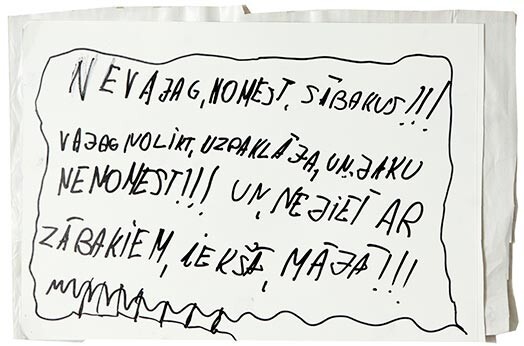 NEVAJAG, NOMEST, SĀBAKUS!!!
VAJAG NOLIKT, UZPAKLĀJA, UN, JAKU
NENOMEST!!! UN, NEJIET AR
ZĀBAKIEM, IEKŠĀ, MĀJĀ!!!